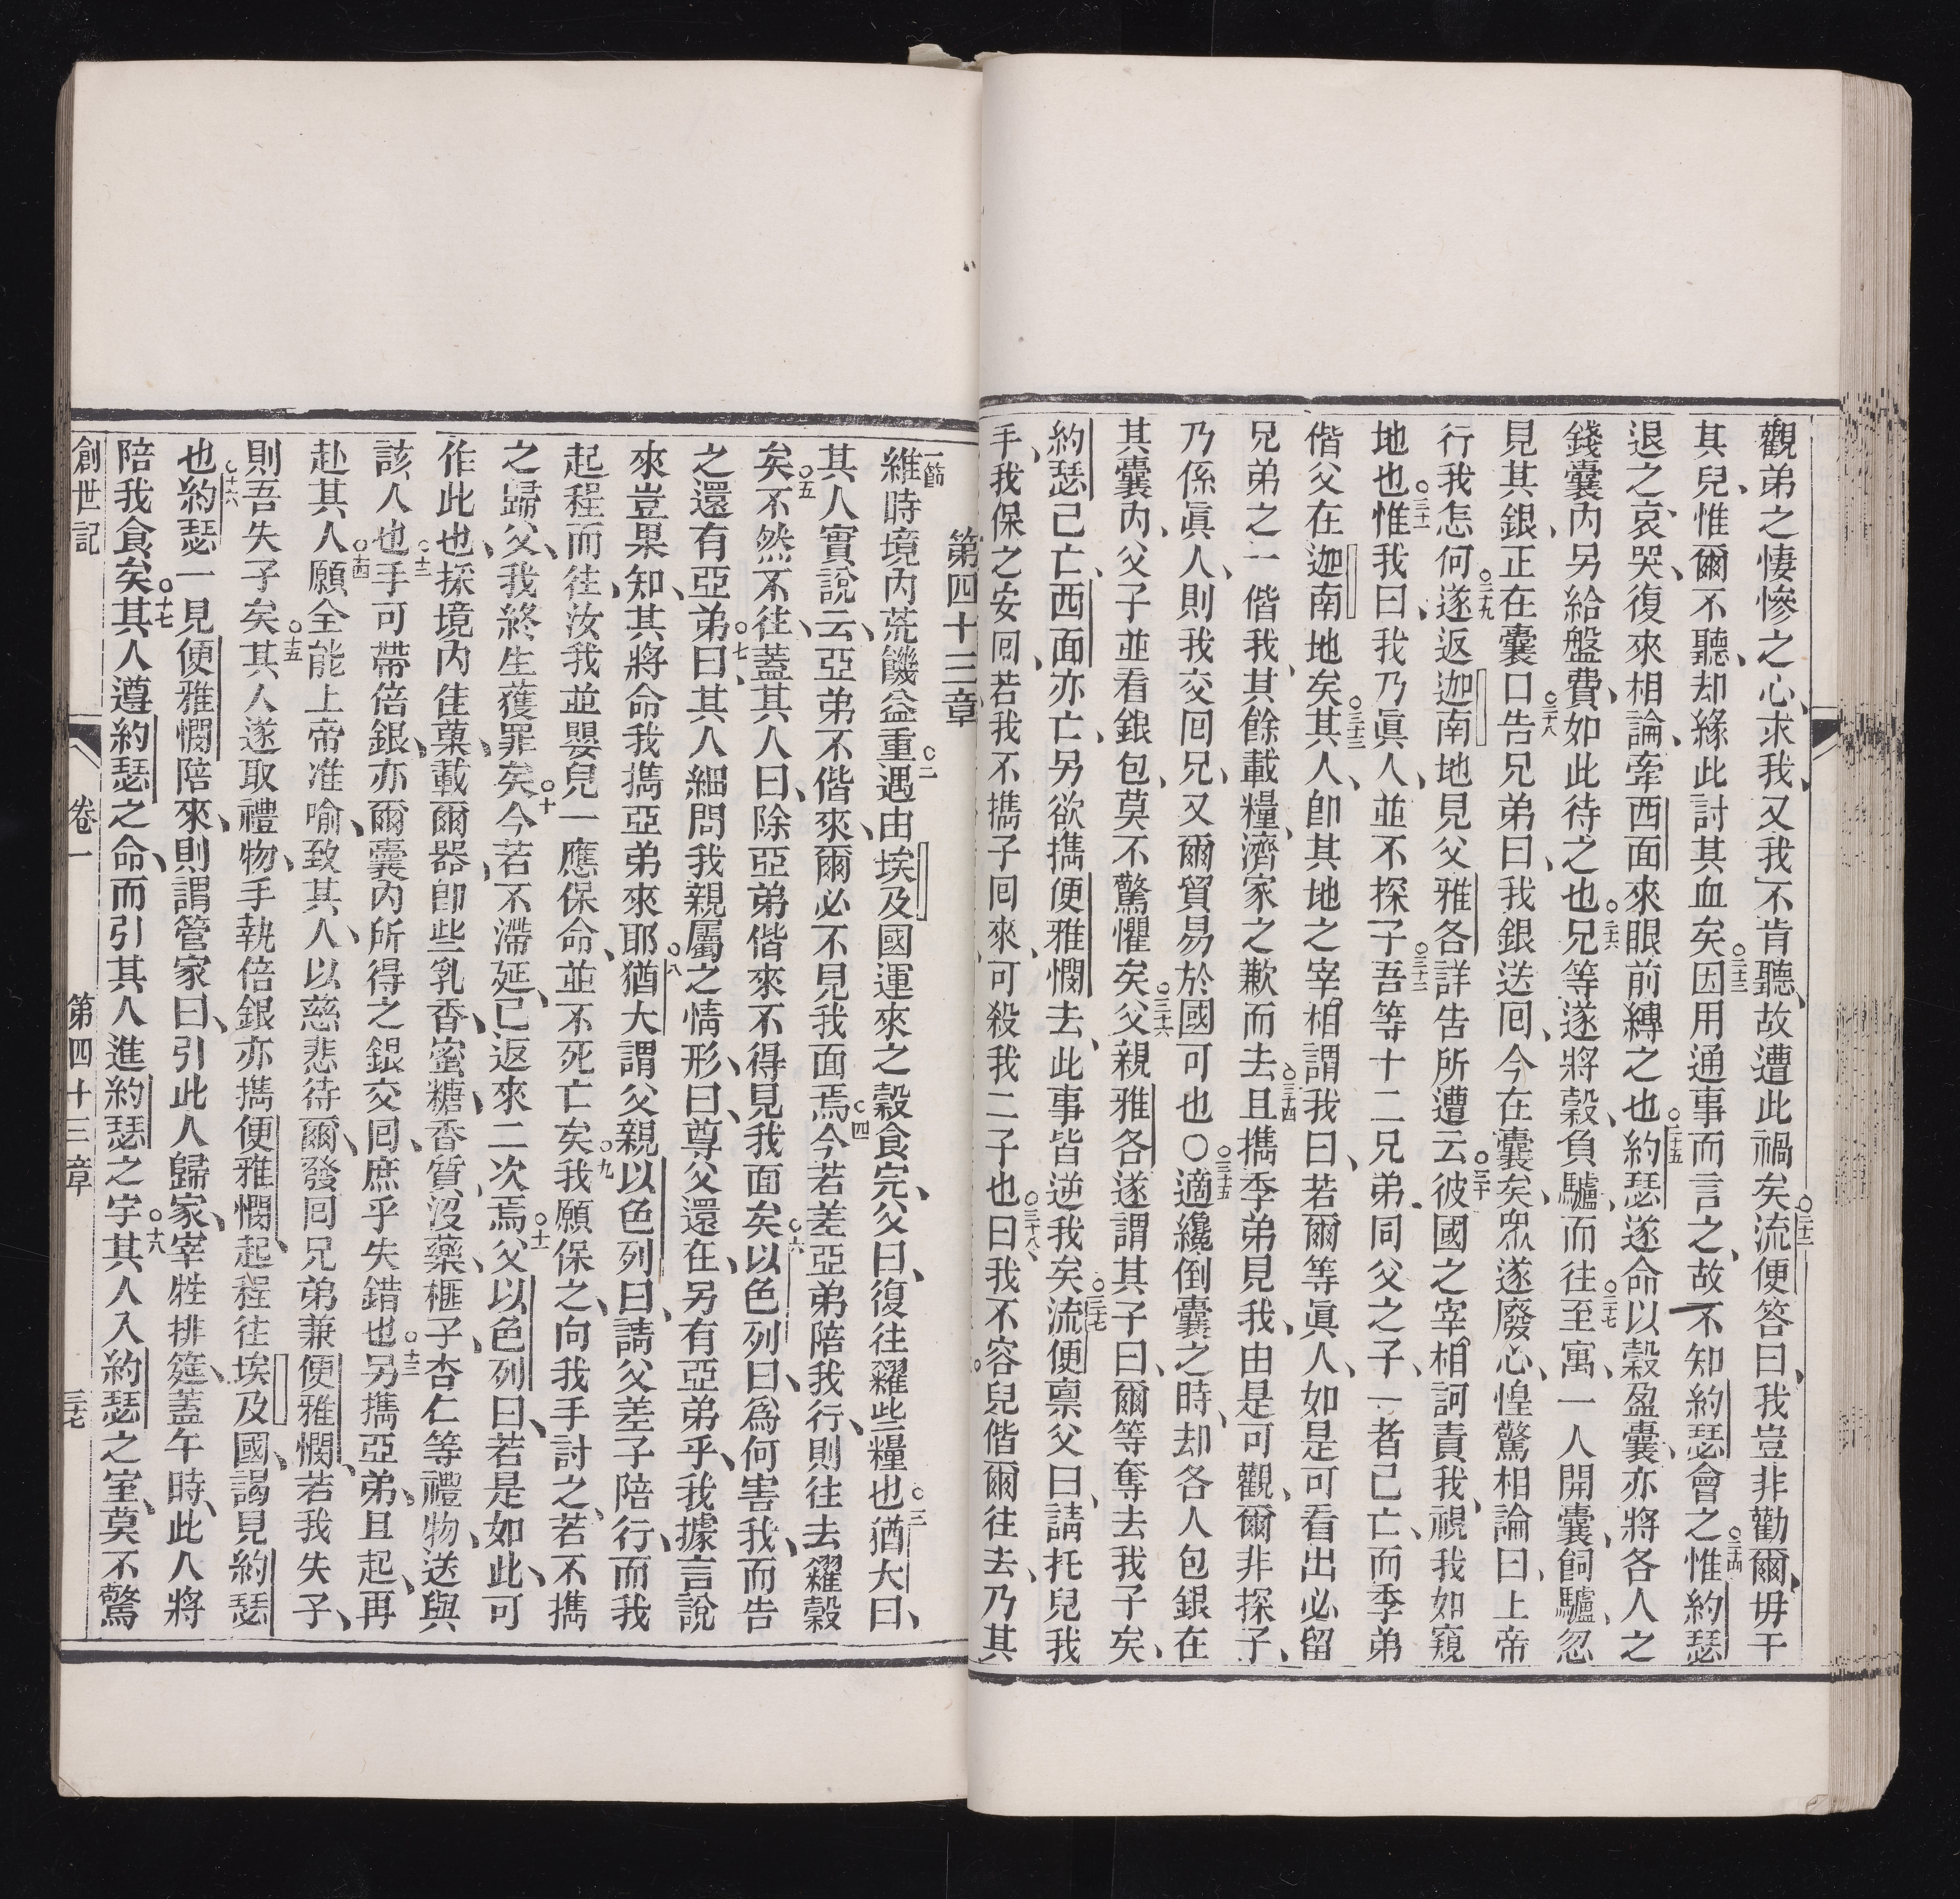 觀弟之悽慘之心、求我、又我不肯聽、故遭此禍矣○二十二流便答曰、我豈非勸爾、毋干
其兒、惟爾不聽、却緣此討其血矣○二十三因用通事而言之、故不知約瑟會之○二十四惟約瑟
退之、哀哭、復來相論、牽西面來眼前縛之也○二十五約瑟遂命以穀盈囊、亦將各人之
錢囊內、另給盤費、如此待之也○二十六兄等遂將穀、負驢、而往○二十七至寓、一人開囊、飼驢、忽
見其銀、正在囊口○二十八告兄弟曰、我銀送回、今在囊矣、眾遂廢心、惶驚相論曰、上帝
行我怎何○二十九遂返迦南地見父雅各詳告所遭云○三十彼國之宰相訶責我、視我如窺
地也○三十一惟我曰、我乃眞人、並不探子○三十二吾等十二兄弟、同父之子、一者已亡、而季弟
偕父在迦南地矣○三十三其人、即其地之宰相謂我曰、若爾等眞人、如是可看出必留
兄弟之一偕我、其餘載糧、濟家之歉而去○三十四且攜季弟見我、由是可觀、爾非探子、
乃係眞人、則我交回兄、又爾貿易於國可也○○三十五適纔倒囊之時、却各人包銀在
其囊內、父子並看銀包、莫不驚懼矣○三十六父親雅各遂謂其子曰、爾等奪去我子矣、
約瑟已亡、西面亦亡、另欲攜便雅憫去、此事皆逆我矣○三十七流便禀父曰、請托兒我
手、我保之安回、若我不攜子回來、可殺我二子也○三十八曰、我不容兒偕爾往去、乃其
第四十三章
一節維時境內荒饑益重○二遇由埃及國運來之穀食完、父曰、復往糴些糧也○三猶大曰、
其人實說云、亞弟不偕來、爾必不見我面焉○四今若差亞弟陪我行、則往去糴穀
矣○五不然不往、蓋其人曰、除亞弟偕來不得見我面矣○六以色列曰、爲何害我、而告
之還有亞弟○七曰、其人細問我親屬之情形、曰、尊父還在、另有亞弟乎、我據言說
來豈果知、其將命我攜亞弟來耶○八猶大謂父親以色列曰、請父差子陪行、而我
起程而往、汝我並嬰兒一應保命、並不死亡矣○九我願保之、向我手討之、若不攜
之歸父、我終生獲罪矣○十今若不滯延、已返來二次焉○十一父以色列曰、若是如此、可
作此也、採境內佳菓、載爾器、即些乳香、蜜糖、香質、沒藥、榧子、杏仁等禮物、送與
該人也○十二手可帶倍銀、亦爾囊內所得之銀交回、庶乎失錯也○十三另攜亞弟、且起、再
赴其人○十四願全能上帝准喻、致其人、以慈悲待爾、發回兄弟兼便雅憫、若我失子、
則吾失子矣○十五其人遂取禮物、手執倍銀亦攜便雅憫、起程往埃及國、謁見約瑟
也○十六約瑟一見便雅憫陪來、則謂管家曰、引此人歸家、宰牲排筵、蓋午時、此人將
陪我食矣○十七其人遵約瑟之命、而引其人進約瑟之宇○十八其人入約瑟之室、莫不驚
創世記 卷一 第四十三章 三十七